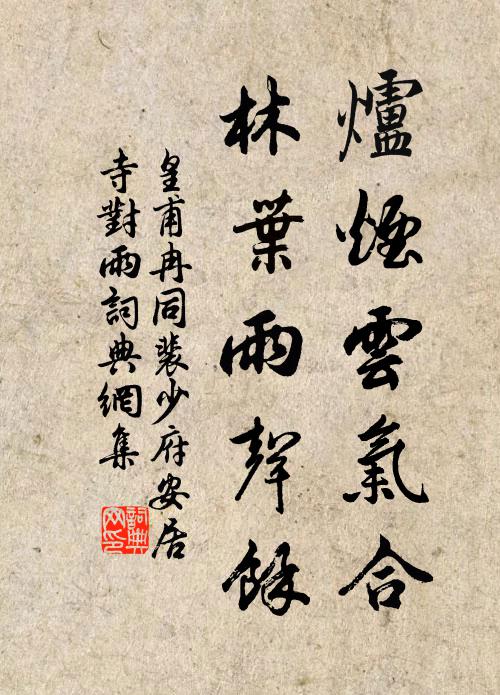 爐煙雲氣合
林葉雨聲餘
皇甫冉同裴少府安居
寺對雨詞典網集
詞典网印